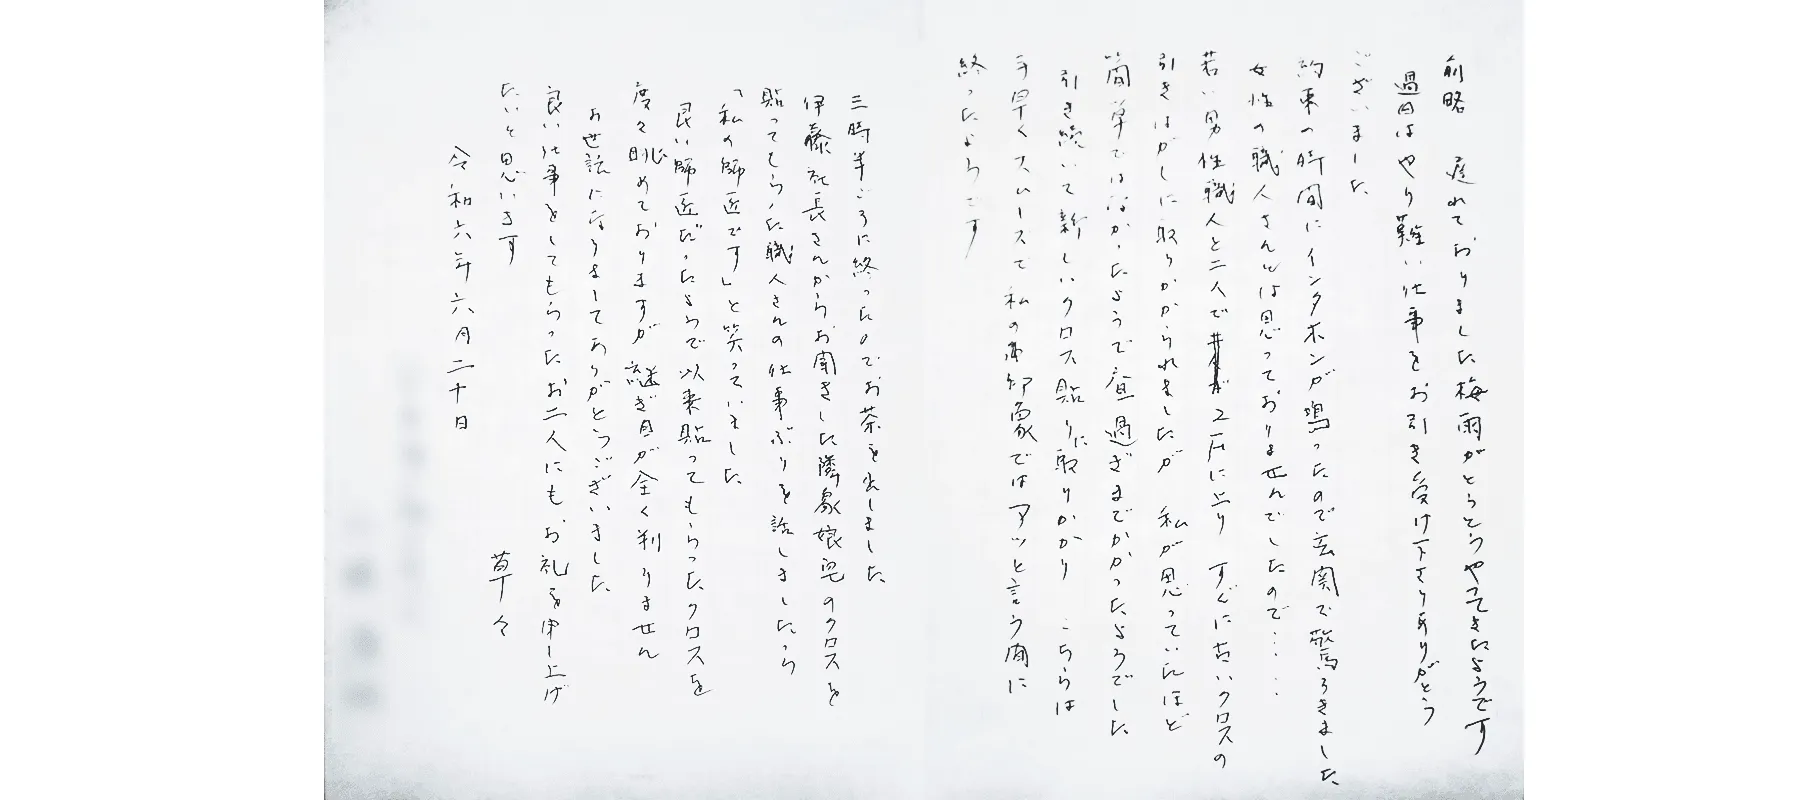 前略　遅れておりました梅雨がとうとうやってきたようです
過日はやり難い仕事をお引き受け下さりありがとう
ございました
約束の時間にインタホンが鳴ったので玄関で驚ろきました
女性の職人さんとは思っておりませんでしたので・・・・
若い男性職人と二人で 2Fに上り　すぐに古いクロスの
引きはがしに取りかかられましたが　私が思っていたほど
簡単ではなかったようで昼過ぎまでかかったようでした
引き続いて新しいクロス貼りに取りかかり　こちらは
手早くスムースで私の印象ではアッと言う間に
終ったようです
三時半ごろに終ったのでお茶を出しました
伊藤社長さんからお聞きした隣家娘宅のクロスを
貼ってもらった職人さんの仕事ぶりを話しましたら
「私の師匠です」と笑っていました
良い師匠だったようで以来貼ってもらったクロスを
度々眺めておりますが継ぎ目が全く判りません
お世話になりましてありがとうございました
良い仕事をしてもらったお二人にもお礼を申し上げ
たいと思います
草々
令和六年六月二十日